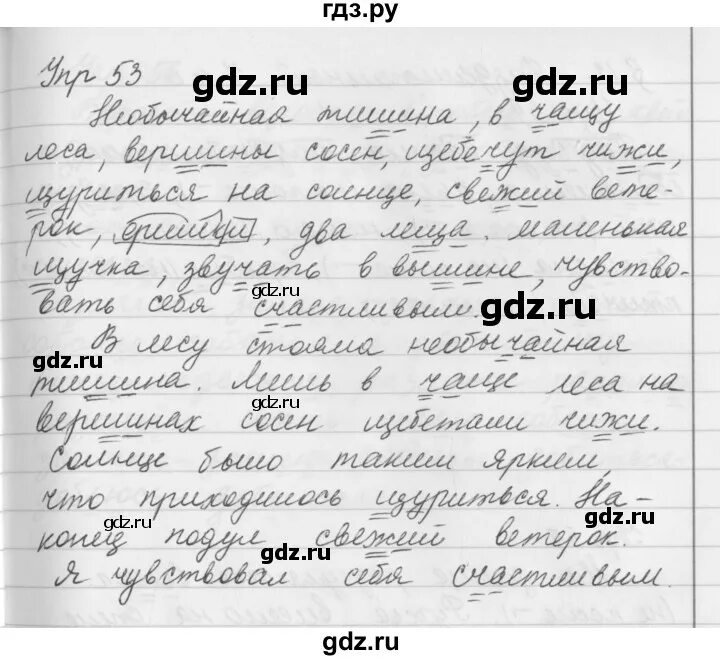 гдз.ру
Упр 53
Необычайная тишина, в чащу
леса, вершины сосен, щебечут чижи,
щуриться на солнце, свежий вете-
рок, два леща. маленькая
щучка, звучать в вышине, чувство-
вать себя счастливым.
В лесу стояла необычайная
тишина. Лишь в чаще леса на
вершинах сосен щебетали чижи.
Солнце было таким ярким,
что приходилось щуриться. На-
конец подул свежий ветерок.
Я чувствовал себя счастливым.
gdz.ru
gdz.ru
gdz.ru
gdz.ru
gdz.ru
gdz.ru
gdz.ru
gdz.ru
gdz.ru
gdz.ru
gdz.ru
gdz.ru